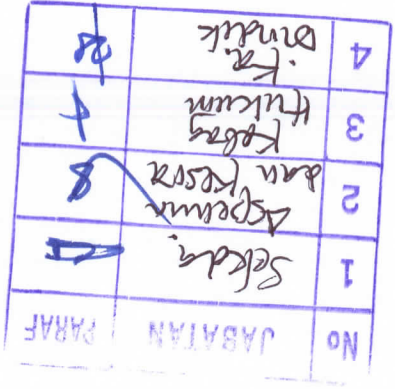 No JABATAN PARAF
1 Sekda.
2 Aspemum
dan Kesra
3 Kabag
Hukum
4 Ka.
Dindik